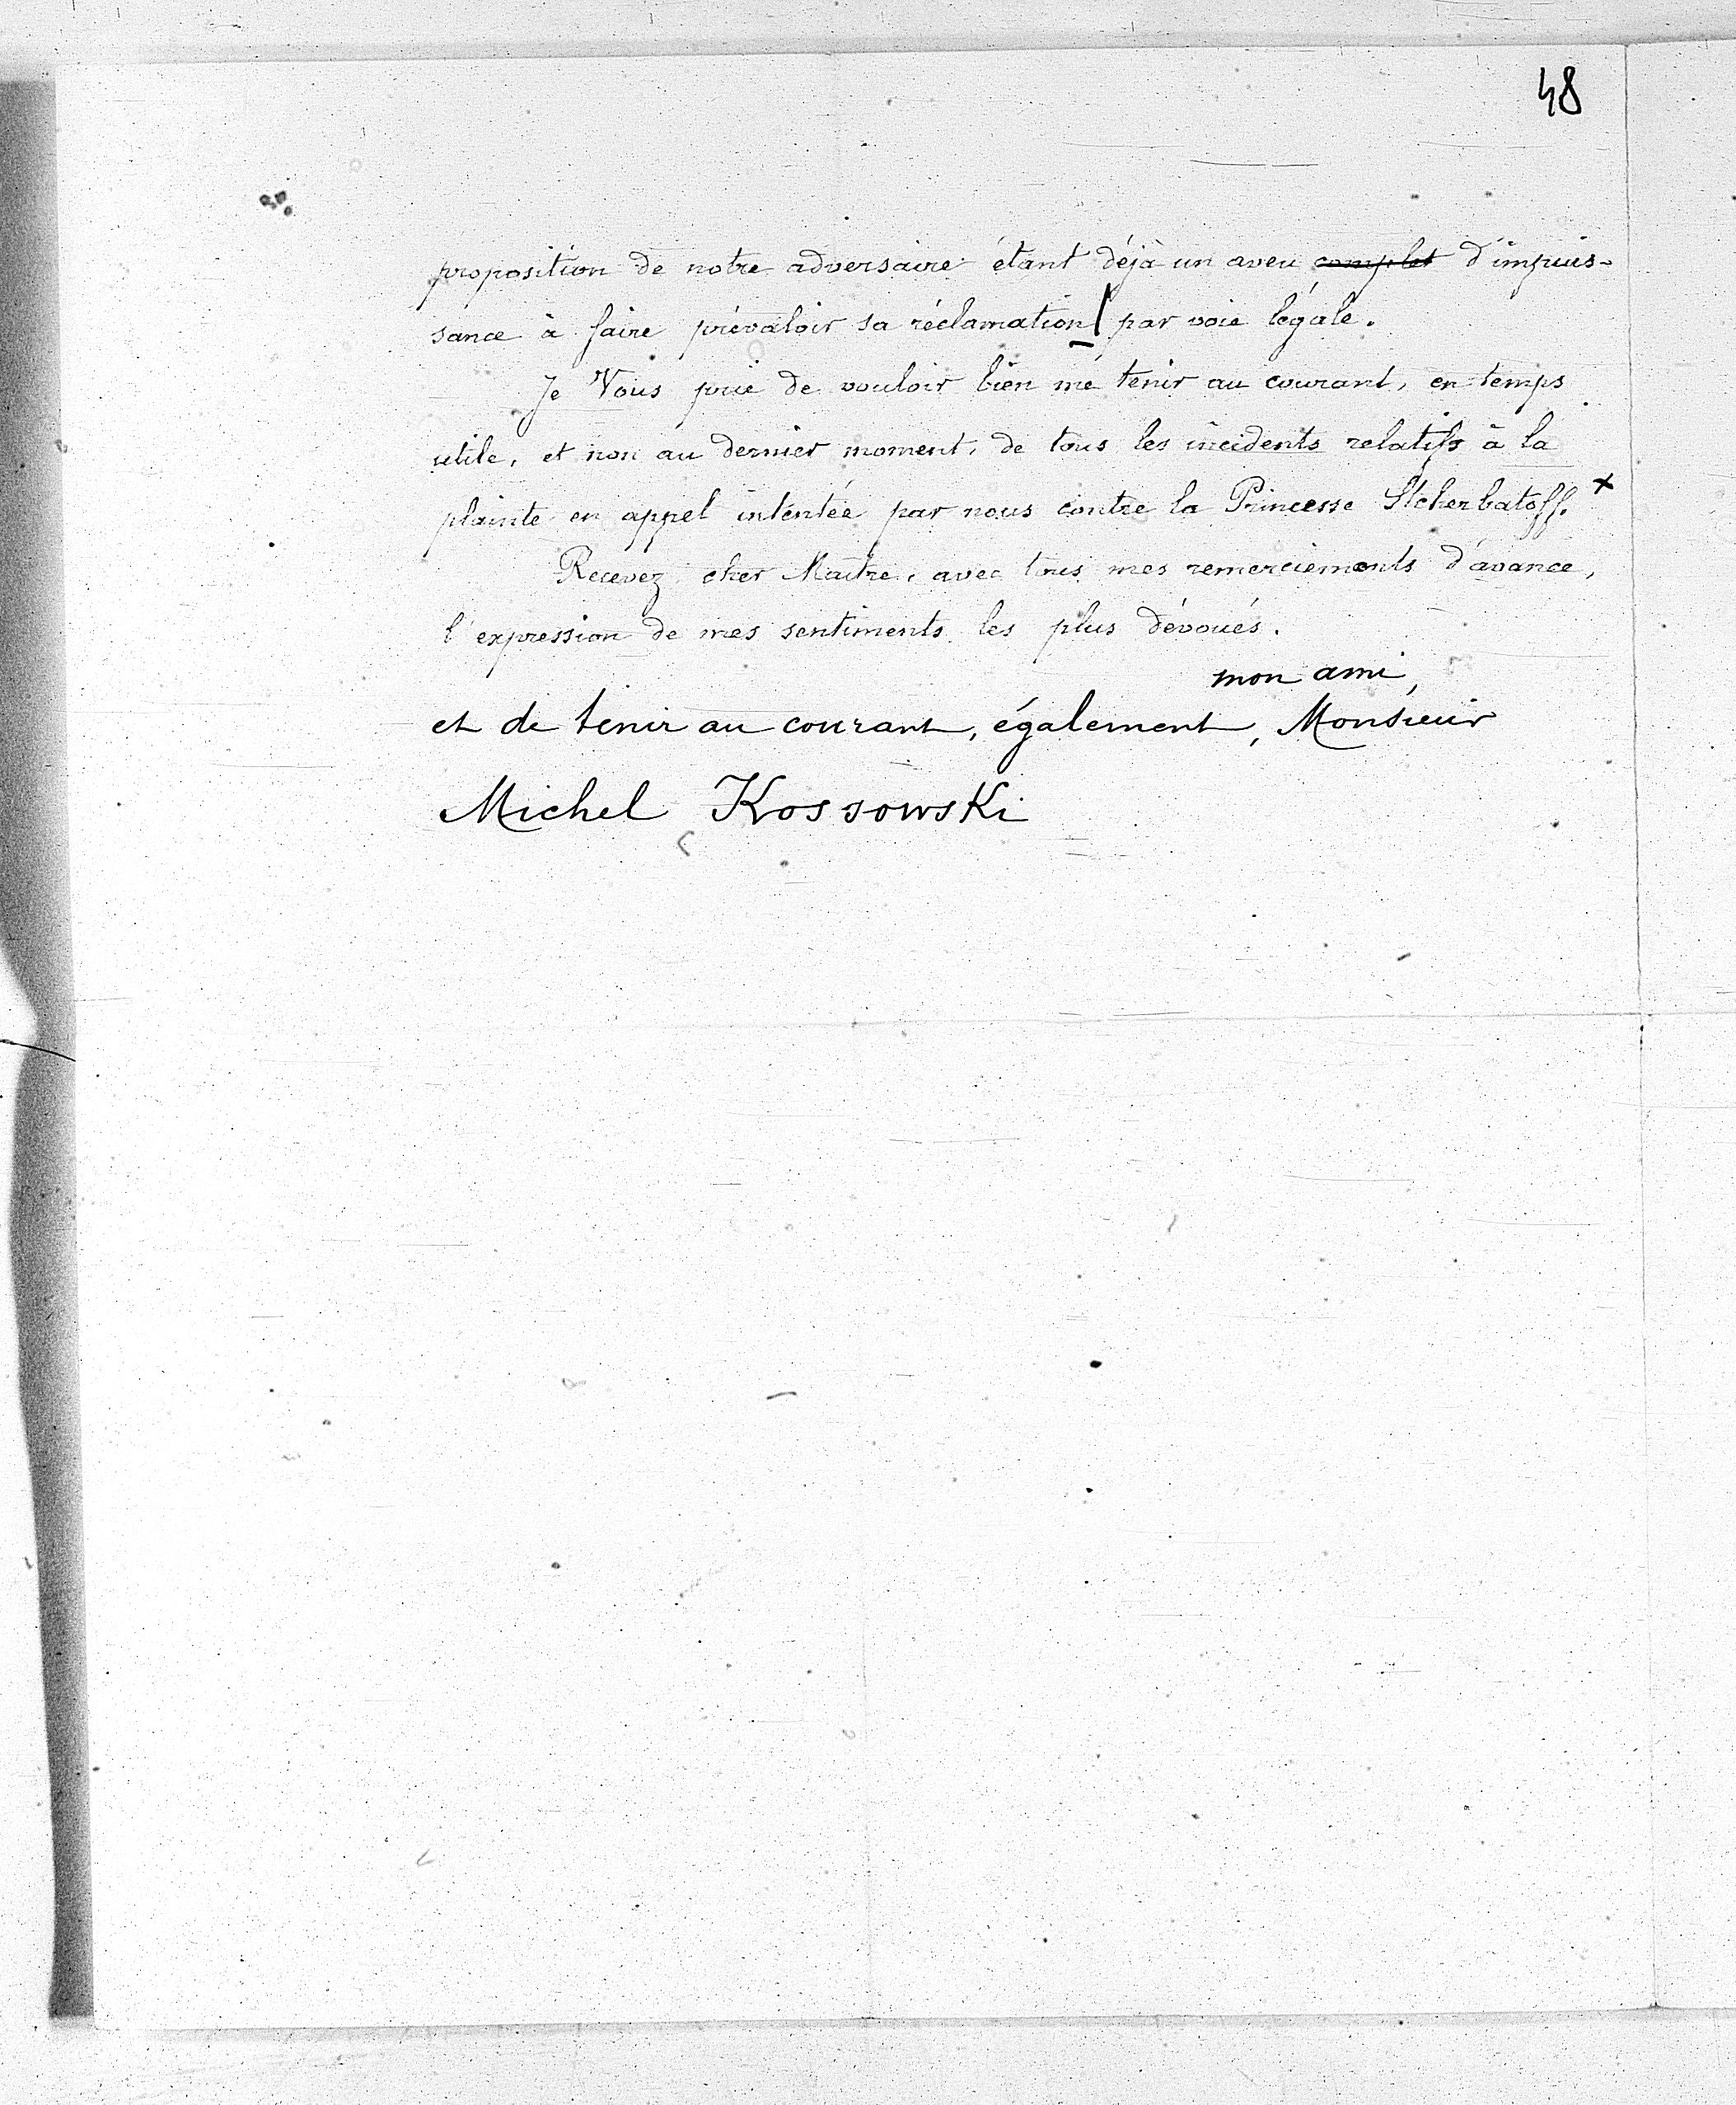 48
proposition de notre adversaire étant déjà un aveu complet d'impuis-
sance à faire prévaloir sa réclamation par voie légale.
Je Vous prie de vouloir bien me tenir au courant, en temps
utile, et non au dernier moment, de tous les incidents relatifs à la
plainte en appel intentée par nous contre la Princesse Stcherbatoff. x
Recevez cher Maître, avec tous mes remerciements d'avance,
l'expression de mes sentiments les plus dévoués.
mon ami,
et de tenir au courant, également, Monsieur
Michel Kossowski